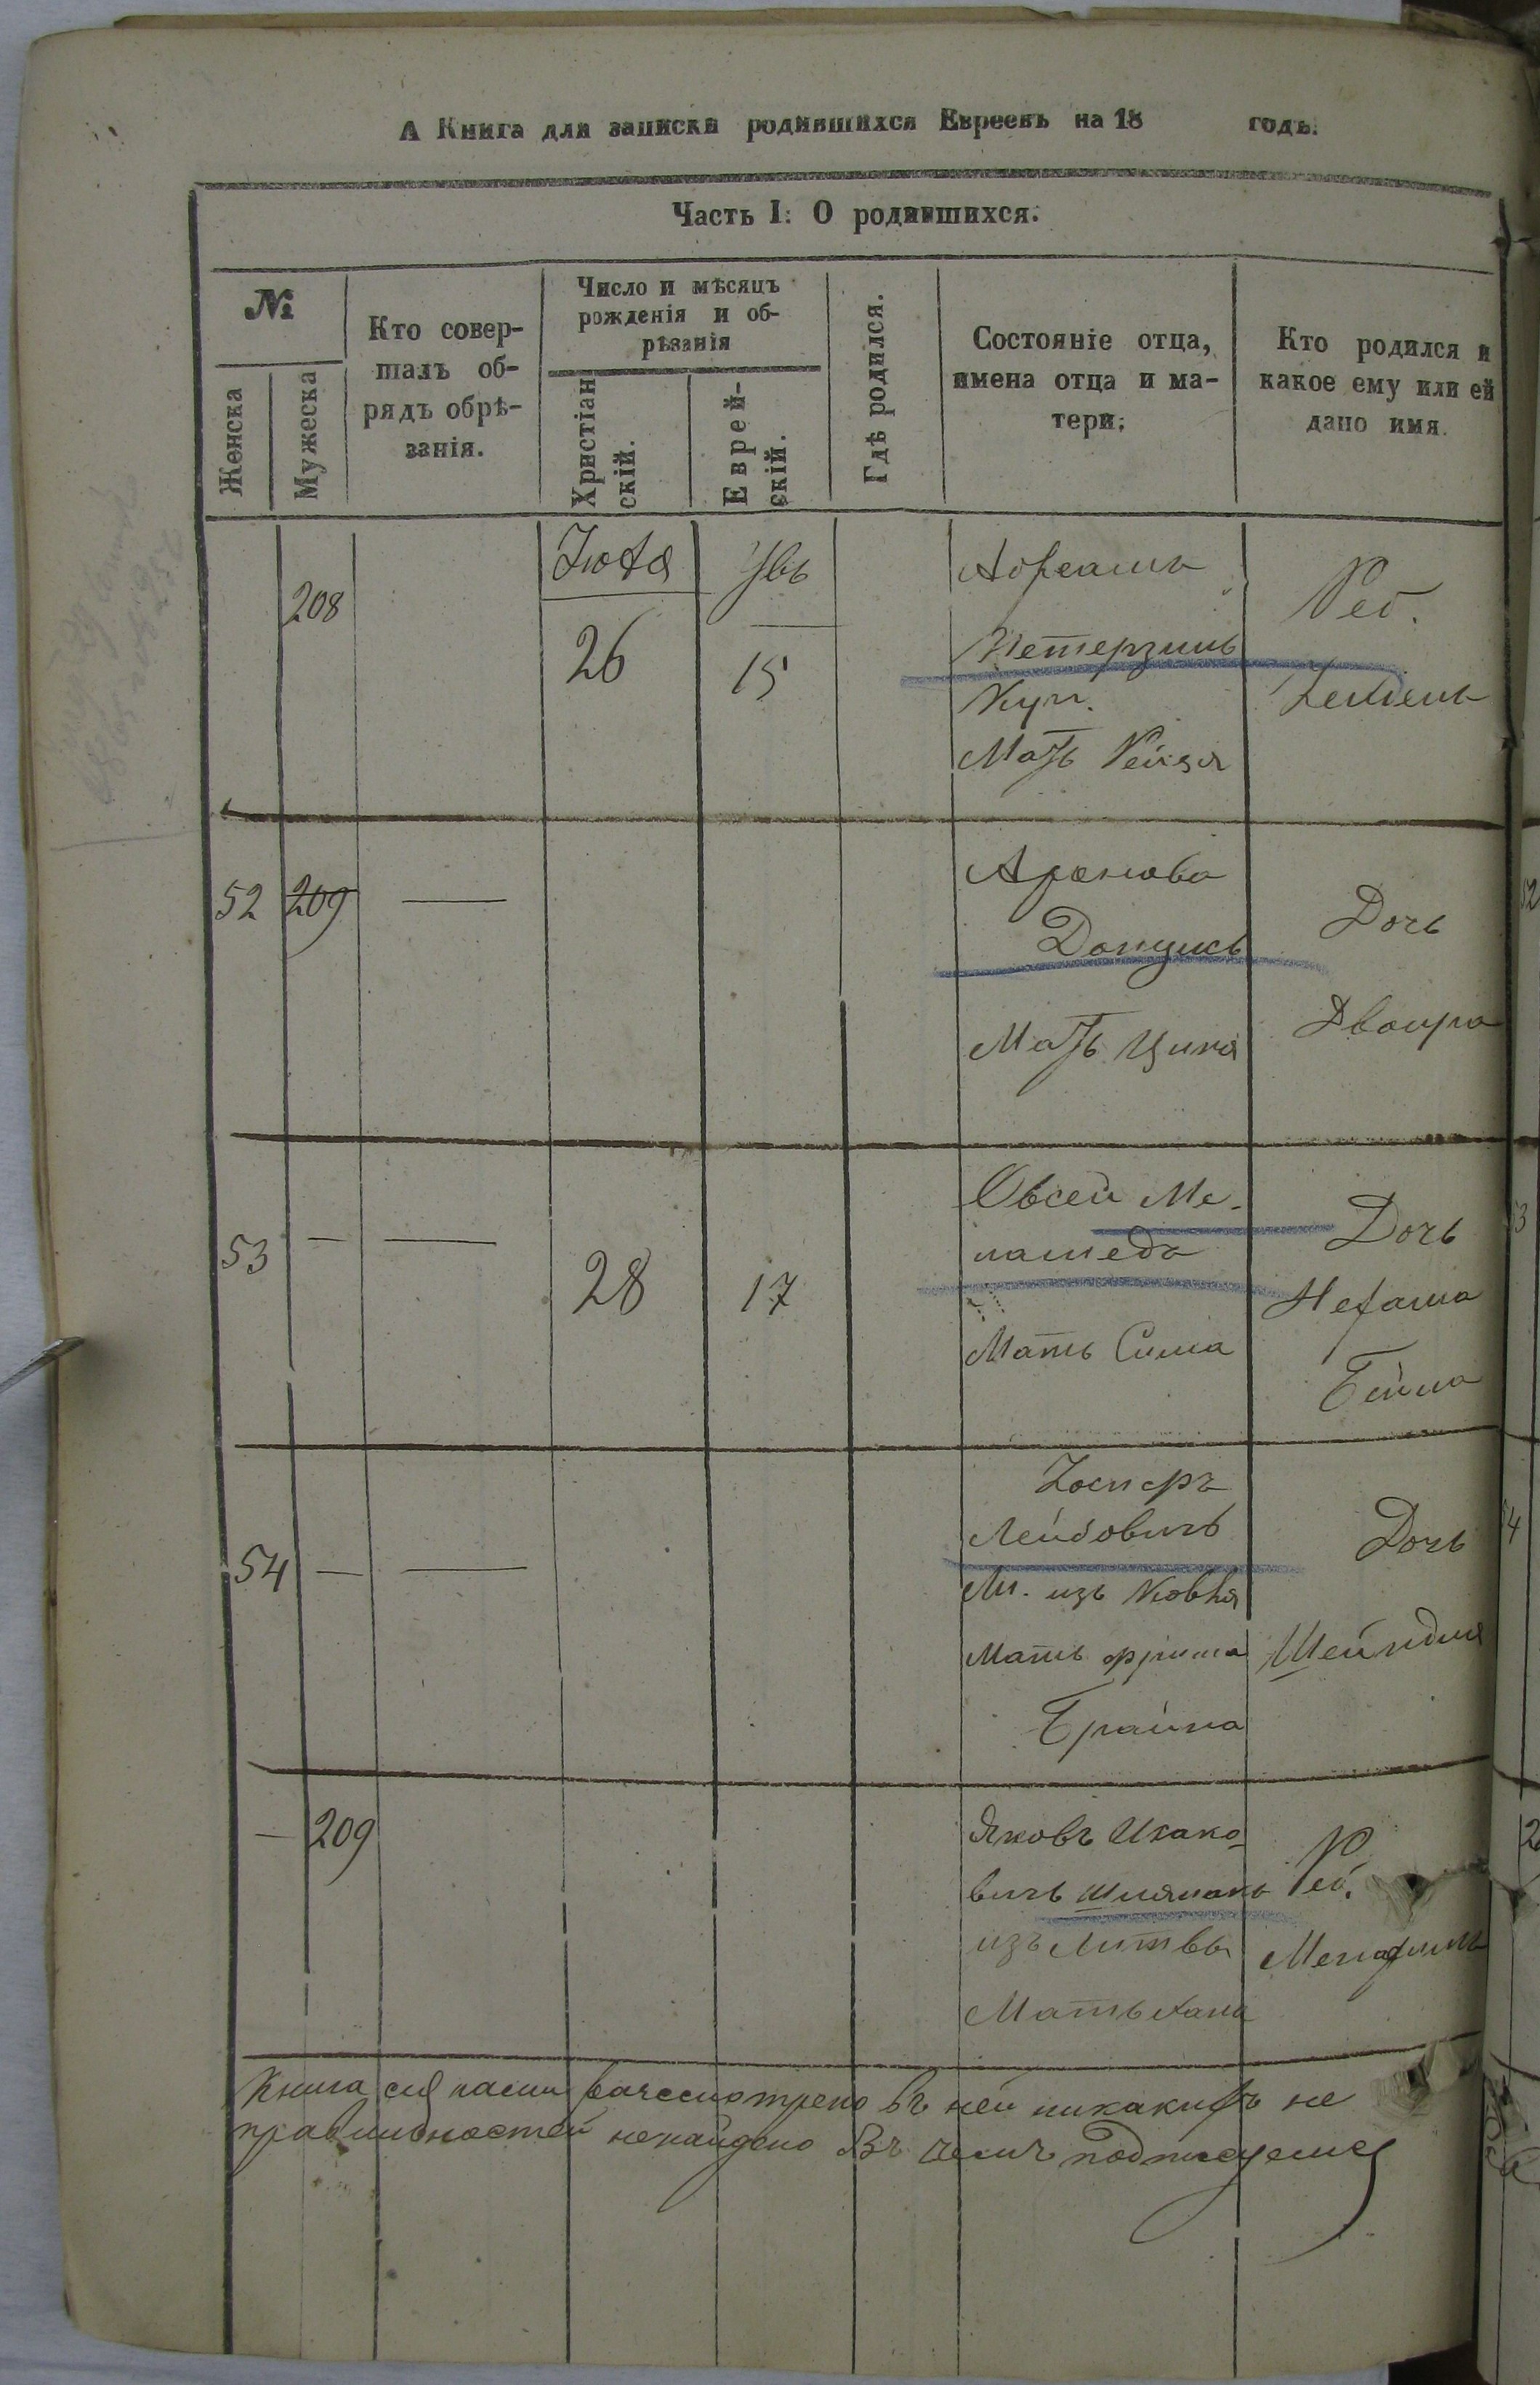 А Книга для записки родившихся Евреевъ на 18 годъ.
Часть I: О родившихся.
№
Женска
Мужеска
Кто совер-
шалъ об-
рядъ обрѣ-
занія.
Число и мѣсяцъ
рожденія и об-
рѣзанія
Христіан
скій.
Еврей-
скій.
Гдѣ родился.
Состояніе отца,
имена отца и ма-
тери;
Кто родился и
какое ему или ей
дано имя.
208
26
15
Абрамъ
Петерзиль
Куп.
Мать Рейзя
Реб.
52 209 —
Аронова
Данцисъ
Мать Ципа
Дочь
Двойра
53 — —
28
17
Овсей Ме-
ламеда
Мать Сима
Дочь
Нехама
Бейла
54 — —
Лейбовичъ
М. изъ Ковня
Мать Фрима
Брайна
Дочь
Шейндля
— 209
Яковъ Исако-
вичъ
изъ Литвы
Мать Хана
Реб.
Книга сія нами въ ней никакихъ не
правильностей ненайдено Въ чемъ подписуемся